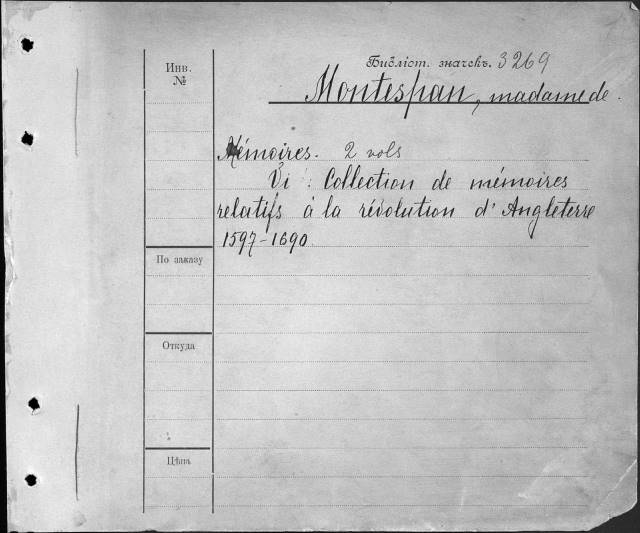 Инв.
№
Библіот. значекъ. 3269
Montespan, madame de.
Mémoires. 2 vols
Vi : Collection de mémoires
relatifs à la révolution d'Angleterre
1597-1690
По заказу
Откуда
Цѣна